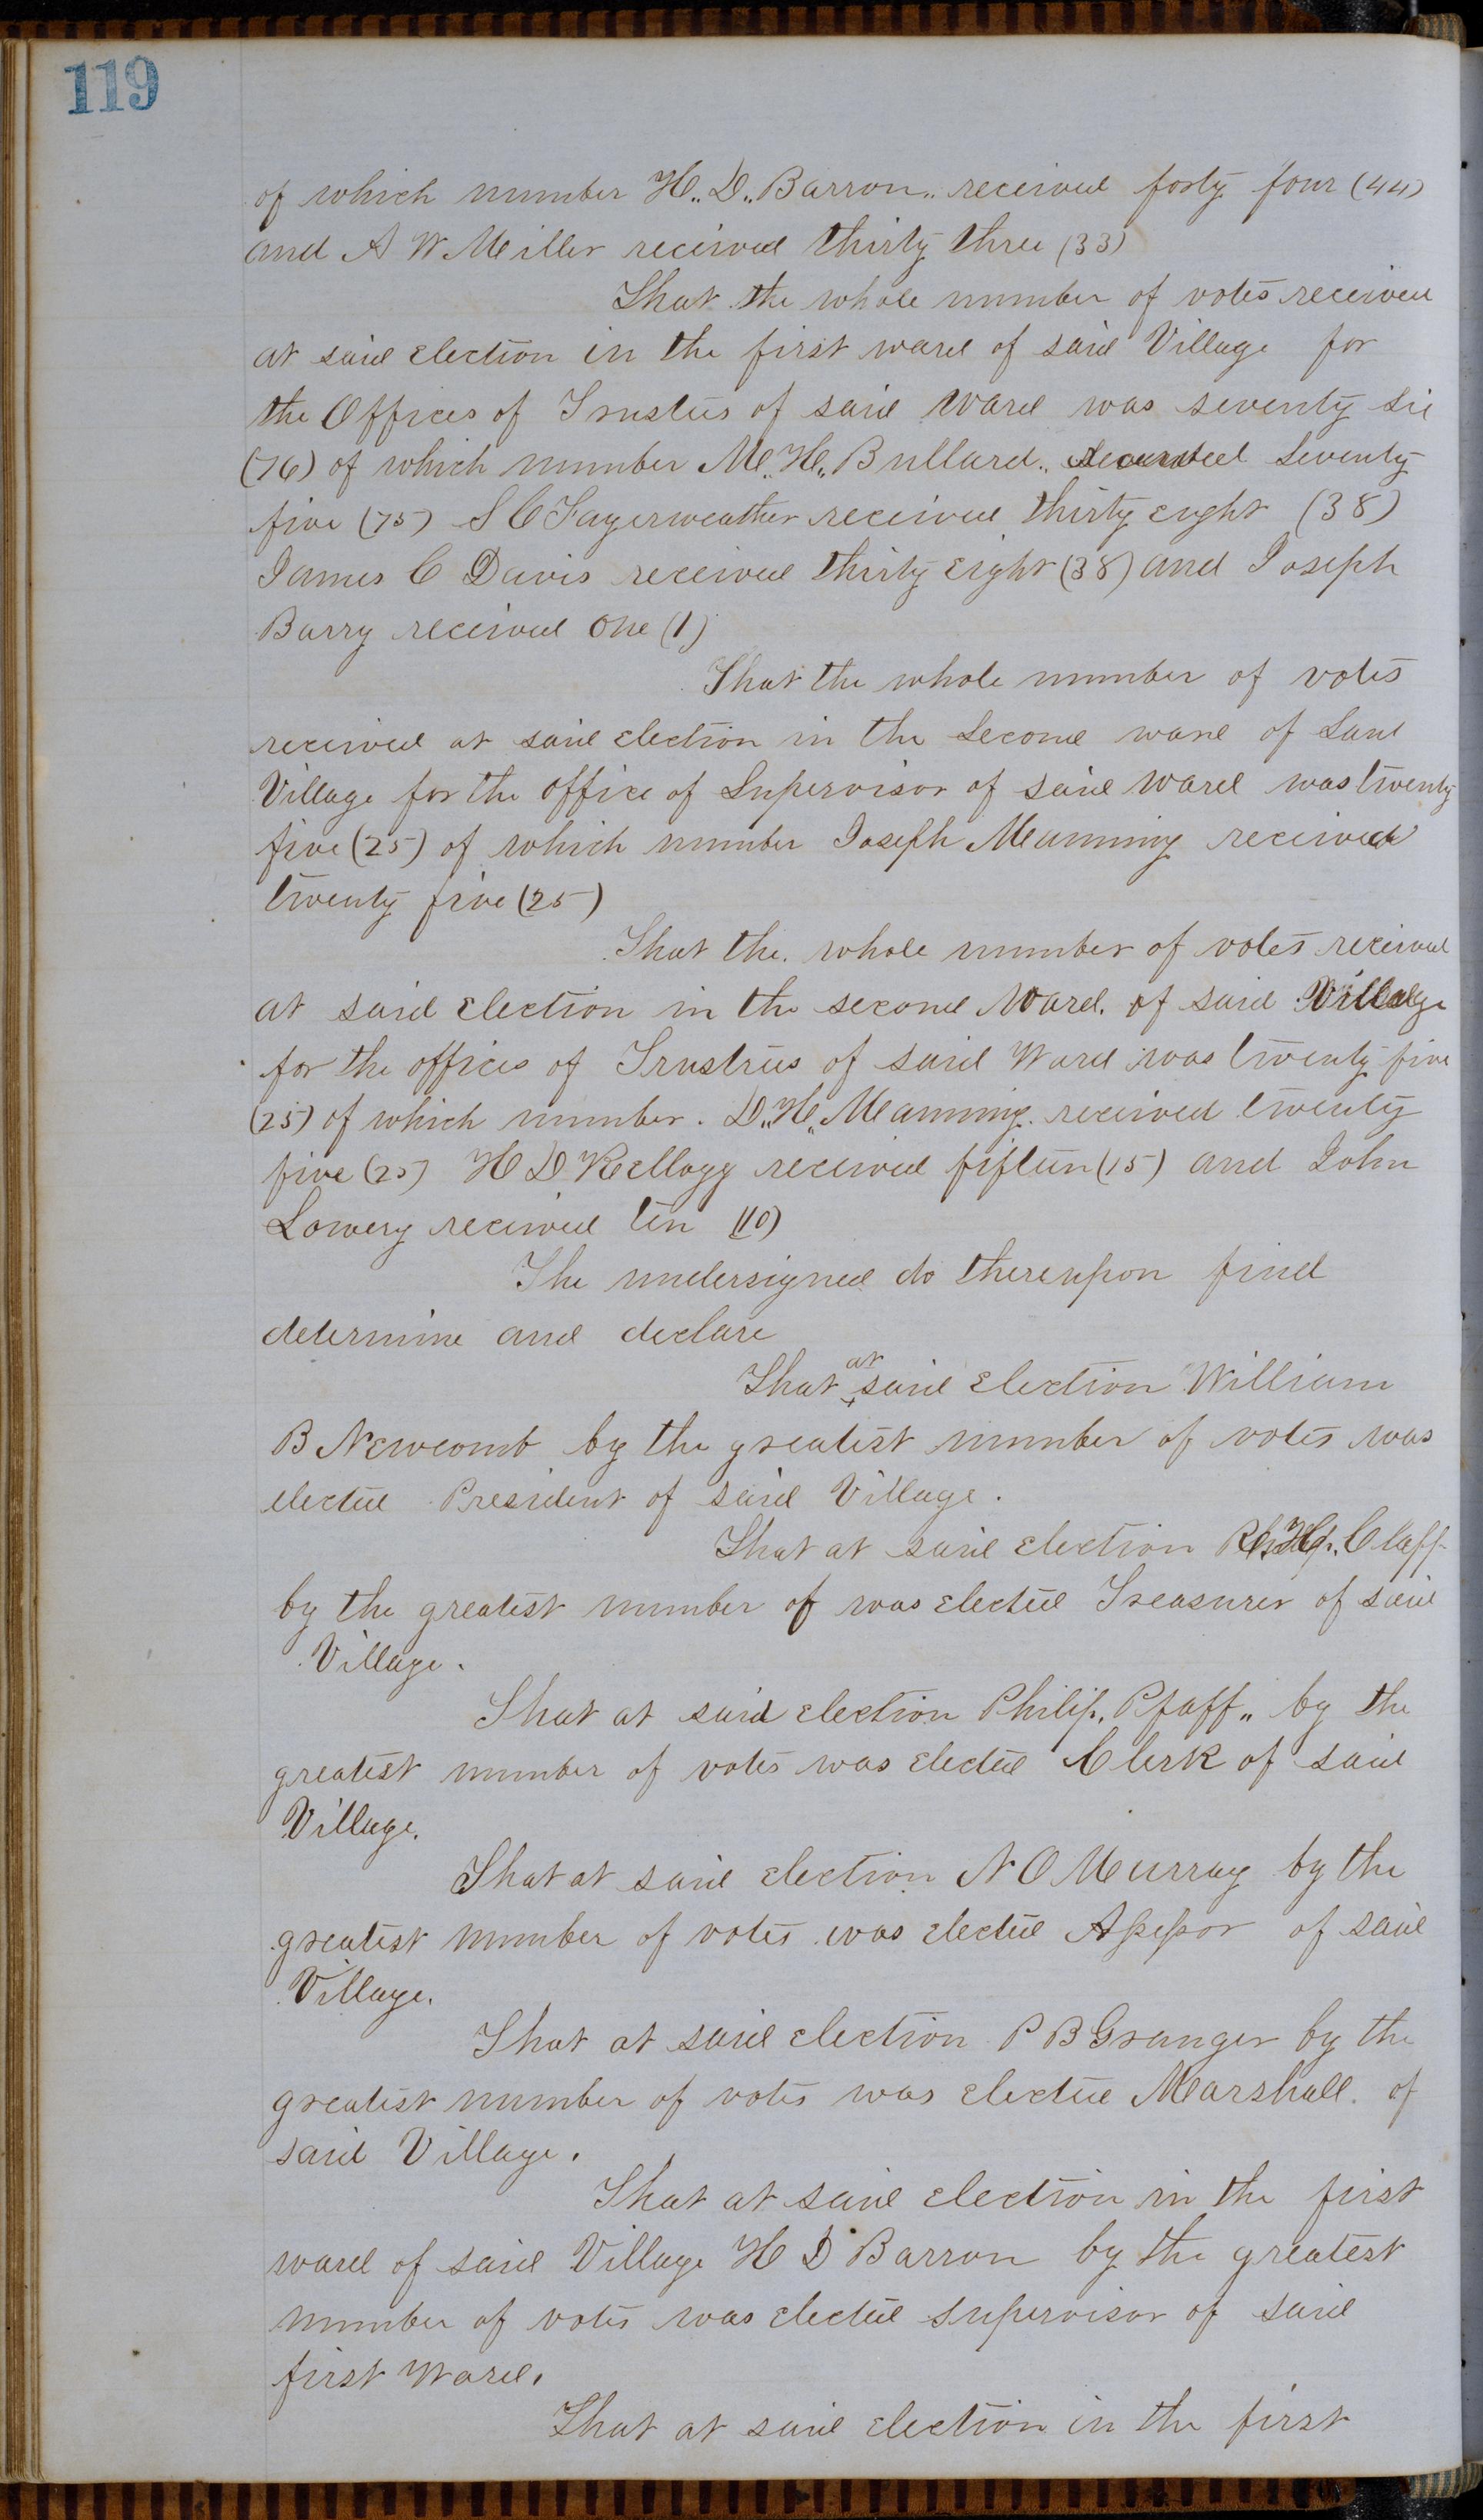 119
of which number H.. D.. Barron.. received forty four (44)
and A W Miller received thirty three (33)
That the whole number of votes received
at said Election in the first ward of said Village for
the Offices of Trustees of said Ward was seventy six
(76) of which number M.. H.. Bullard.. received seventy
five (75) S C Fayerweather received thirty eight (38)
James C Davis received thirty eight (38) and Joseph
Barry received one (1)
That the whole number of votes
received at said Election in the second ward of said
Village for the office of Supervisor of said Ward was twenty
five (25) of which number Joseph Manning received
twenty five (25)
That the whole number of votes received
at said Election in the second Ward. of said Village
for the offices of Trustees of said Ward was twenty five
(25) of which number. D.. H.. Manning. received twenty
five (25) H D Kellogg received fifteen (15) and John
Lowery received ten (10)
The undersigned do thereupon find
determine and declare
That at said Election William
B Newcomb by the greatest number of votes was
elected President of said Village.
That at said Election Clapp
by the greatest number of was Elected Treasurer of said
Village.
That at said Election Philip. Pfaff.. by the
greatest number of votes was Elected Clerk of said
Village.
That at said Election N O Murray by the
greatest number of votes was Elected Assessor of said
Village.
That at said Election P B Granger by the
greatest number of votes was Elected Marshall. of
said Village.
That at said Election in the first
ward of said Village H D Barron by the greatest
number of votes was Elected Supervisor of said
first Ward.
That at said Election in the first